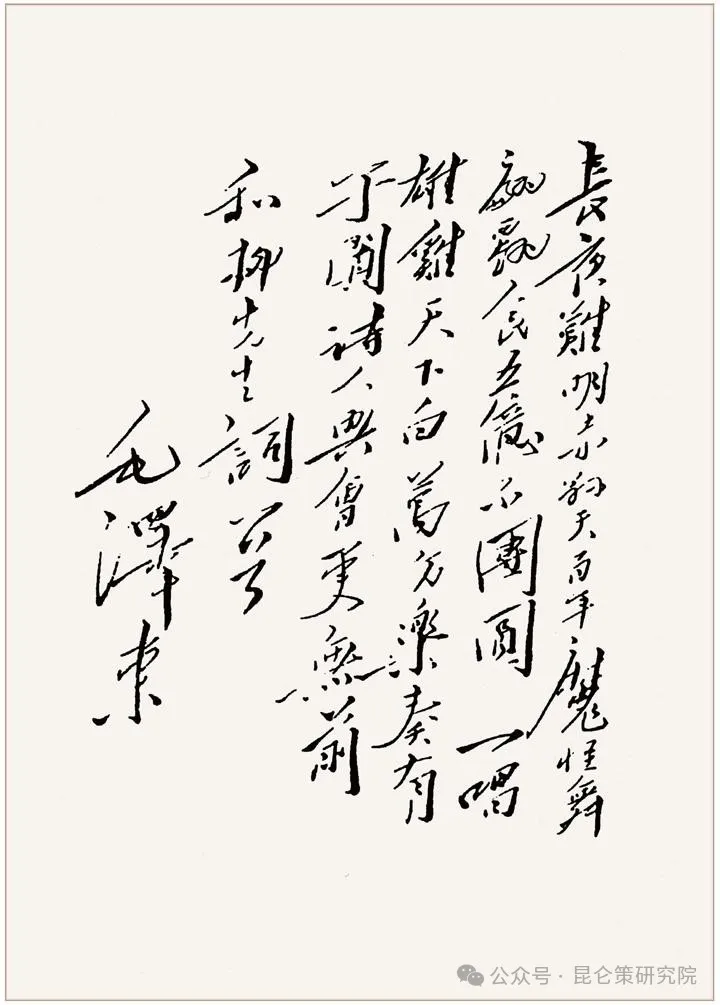 長夜難明赤縣天百年魔怪舞
翩躚人民五億不團圓 一唱
雄雞天下白萬方樂奏有
于闐詩人興會更無前
和柳先生詞首
毛澤東
公众号 · 昆仑策研究院